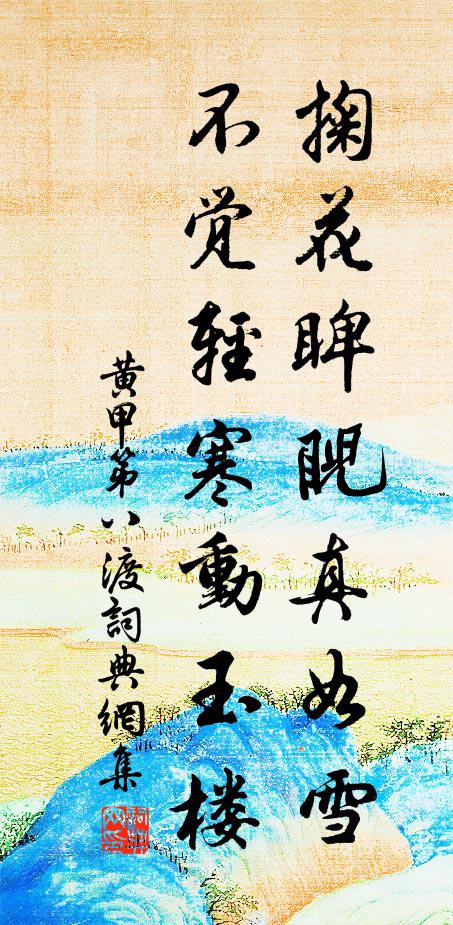 掬花睥睨真如雪
不觉輕寒動玉楼
黄甲第八渡詞典網集